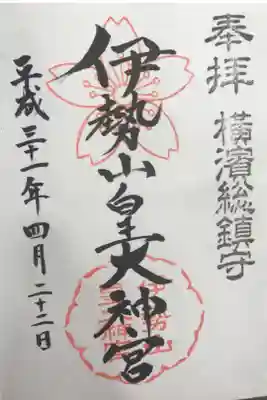 奉拝 横濱総鎮守
伊勢山皇大神宮
平成三十一年四月二十二日